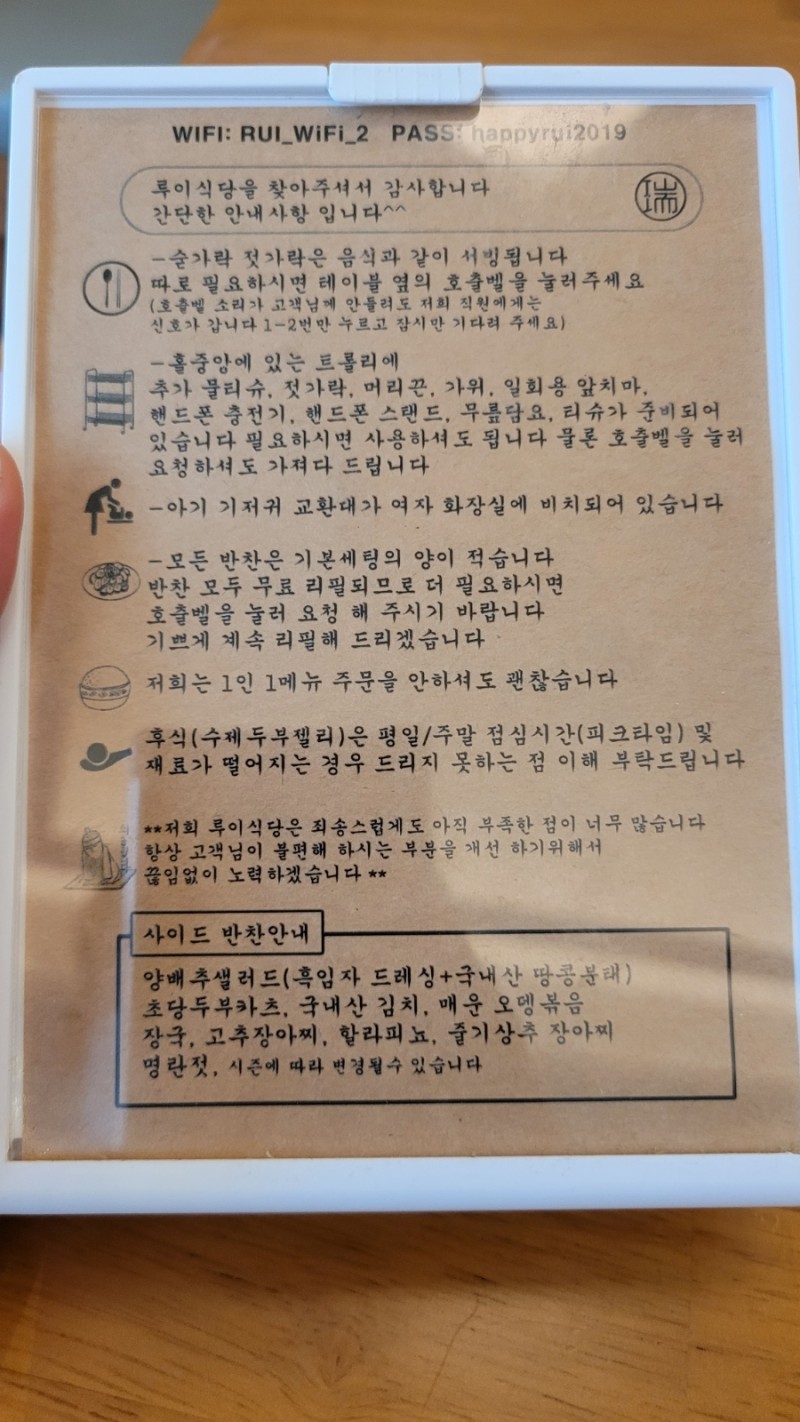 WIFI: RUI_WiFi_2 PASS: happyrui2019
루이식당을 찾아주셔서 감사합니다
간단한 안내사항 입니다^^
瑞
-숟가락 젓가락은 음식과 같이 서빙됩니다
따로 필요하시면 테이블 옆의 호출벨을 눌러주세요
(호출벨 소리가 고객님께 안들려도 저희 직원에게는
신호가 갑니다 1-2번만 누르고 잠시만 기다려 주세요)
-홀중앙에 있는 트롤리에
추가 물티슈, 젓가락, 머리끈, 가위, 일회용 앞치마,
핸드폰 충전기, 핸드폰 스탠드, 무릎담요, 티슈가 준비되어
있습니다 필요하시면 사용하셔도 됩니다 물론 호출벨을 눌러
요청하셔도 가져다 드립니다
-아기 기저귀 교환대가 여자 화장실에 비치되어 있습니다
-모든 반찬은 기본세팅의 양이 적습니다
반찬 모두 무료 리필되므로 더 필요하시면
호출벨을 눌러 요청 해 주시기 바랍니다
기쁘게 계속 리필해 드리겠습니다
저희는 1인 1메뉴 주문을 안하셔도 괜찮습니다
후식(수제두부젤리)은 평일/주말 점심시간(피크타임) 및
재료가 떨어지는 경우 드리지 못하는 점 이해 부탁드립니다
**저희 루이식당은 죄송스럽게도 아직 부족한 점이 너무 많습니다
항상 고객님이 불편해 하시는 부분을 개선 하기위해서
끊임없이 노력하겠습니다 **
사이드 반찬안내
양배추샐러드(흑임자 드레싱+국내산 땅콩분태)
초당두부카츠, 국내산 김치, 매운 오뎅볶음
장국, 고추장아찌, 할라피뇨, 줄기상추 장아찌
명란젓, 시즌에 따라 변경될수 있습니다